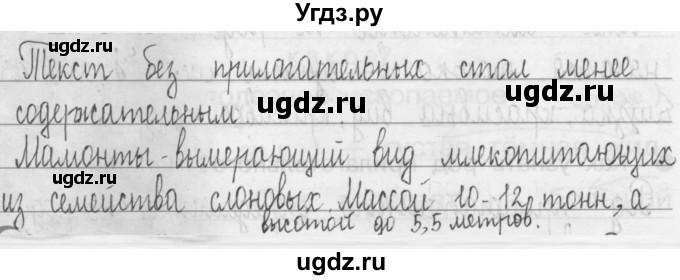 Угдз.ру
Текст без прилагательных стал менее
содержательным
Мамонты - вымерающий вид млекопитающих
из семейства слоновых. Массой 10-12 тонн, а
высотой до 5,5 метров.
ugdz.ru
ugdz.ru
ugdz.ru
ugdz.ru
ugdz.ru
ugdz.ru